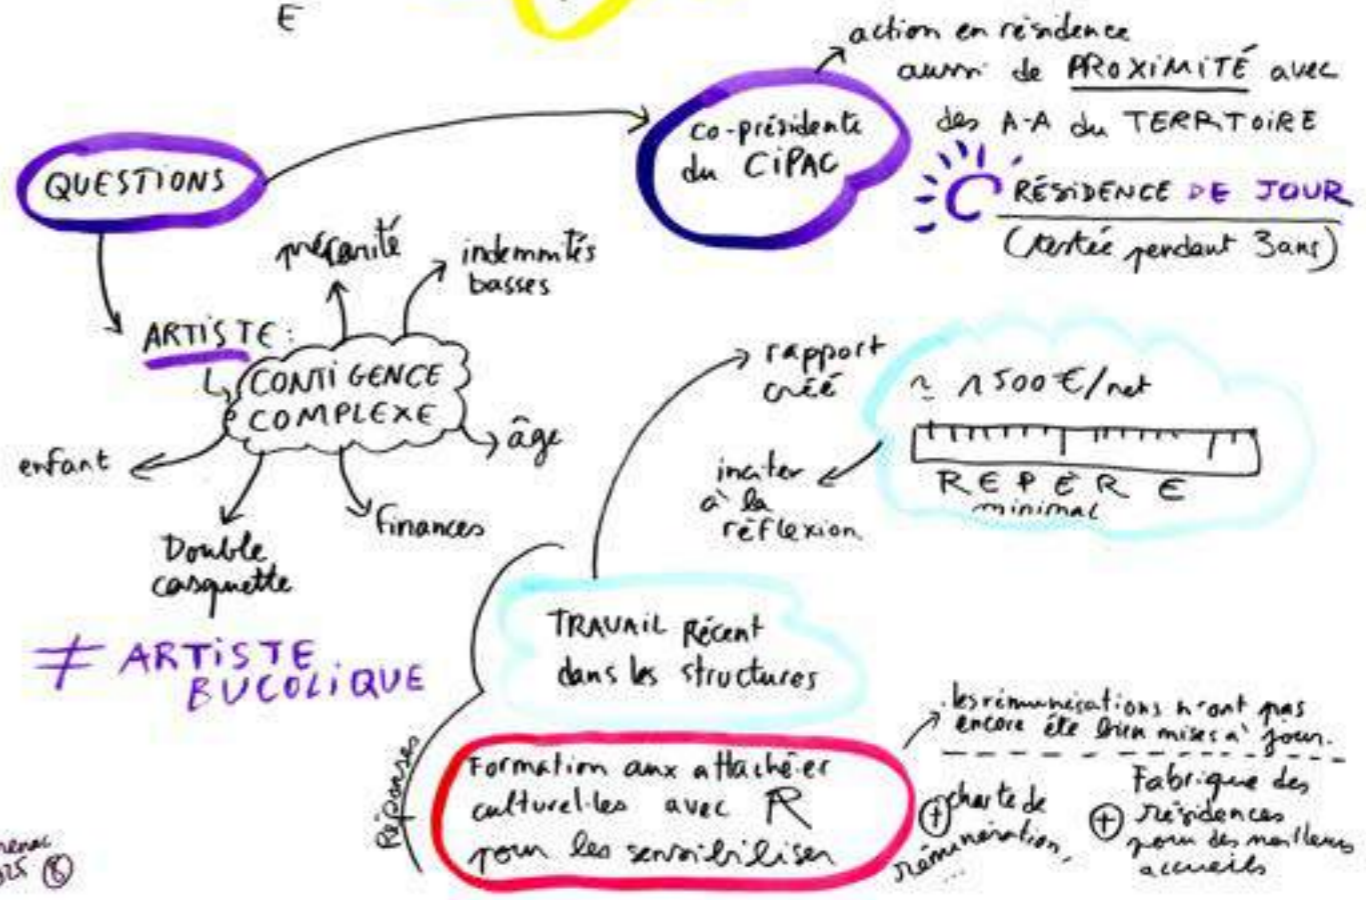 E
action en résidence
aussi de PROXIMITÉ avec
des A-A du TERRITOIRE
RÉSIDENCE DE JOUR
(testée pendant 3 ans)
co-présidente
du CIPAC
QUESTIONS
précarité
indemnités
basses
ARTISTE :
CONTIGENCE
COMPLEXE
enfant
âge
finances
Double
casquette
≠ ARTISTE
BUCOLIQUE
rapport
créé
~ 1500 €/net
REPÈRE
minimal
inciter
à la
réflexion
TRAVAIL Récent
dans les structures
Réponses
Formation aux attaché·es
culturel·les avec R
pour les sensibiliser
. les rémunérations n'ont pas
encore été bien mises à jour.
+ charte de
rémunération,
...
+ Fabrique des
résidences
pour des meilleurs
accueils
025 8